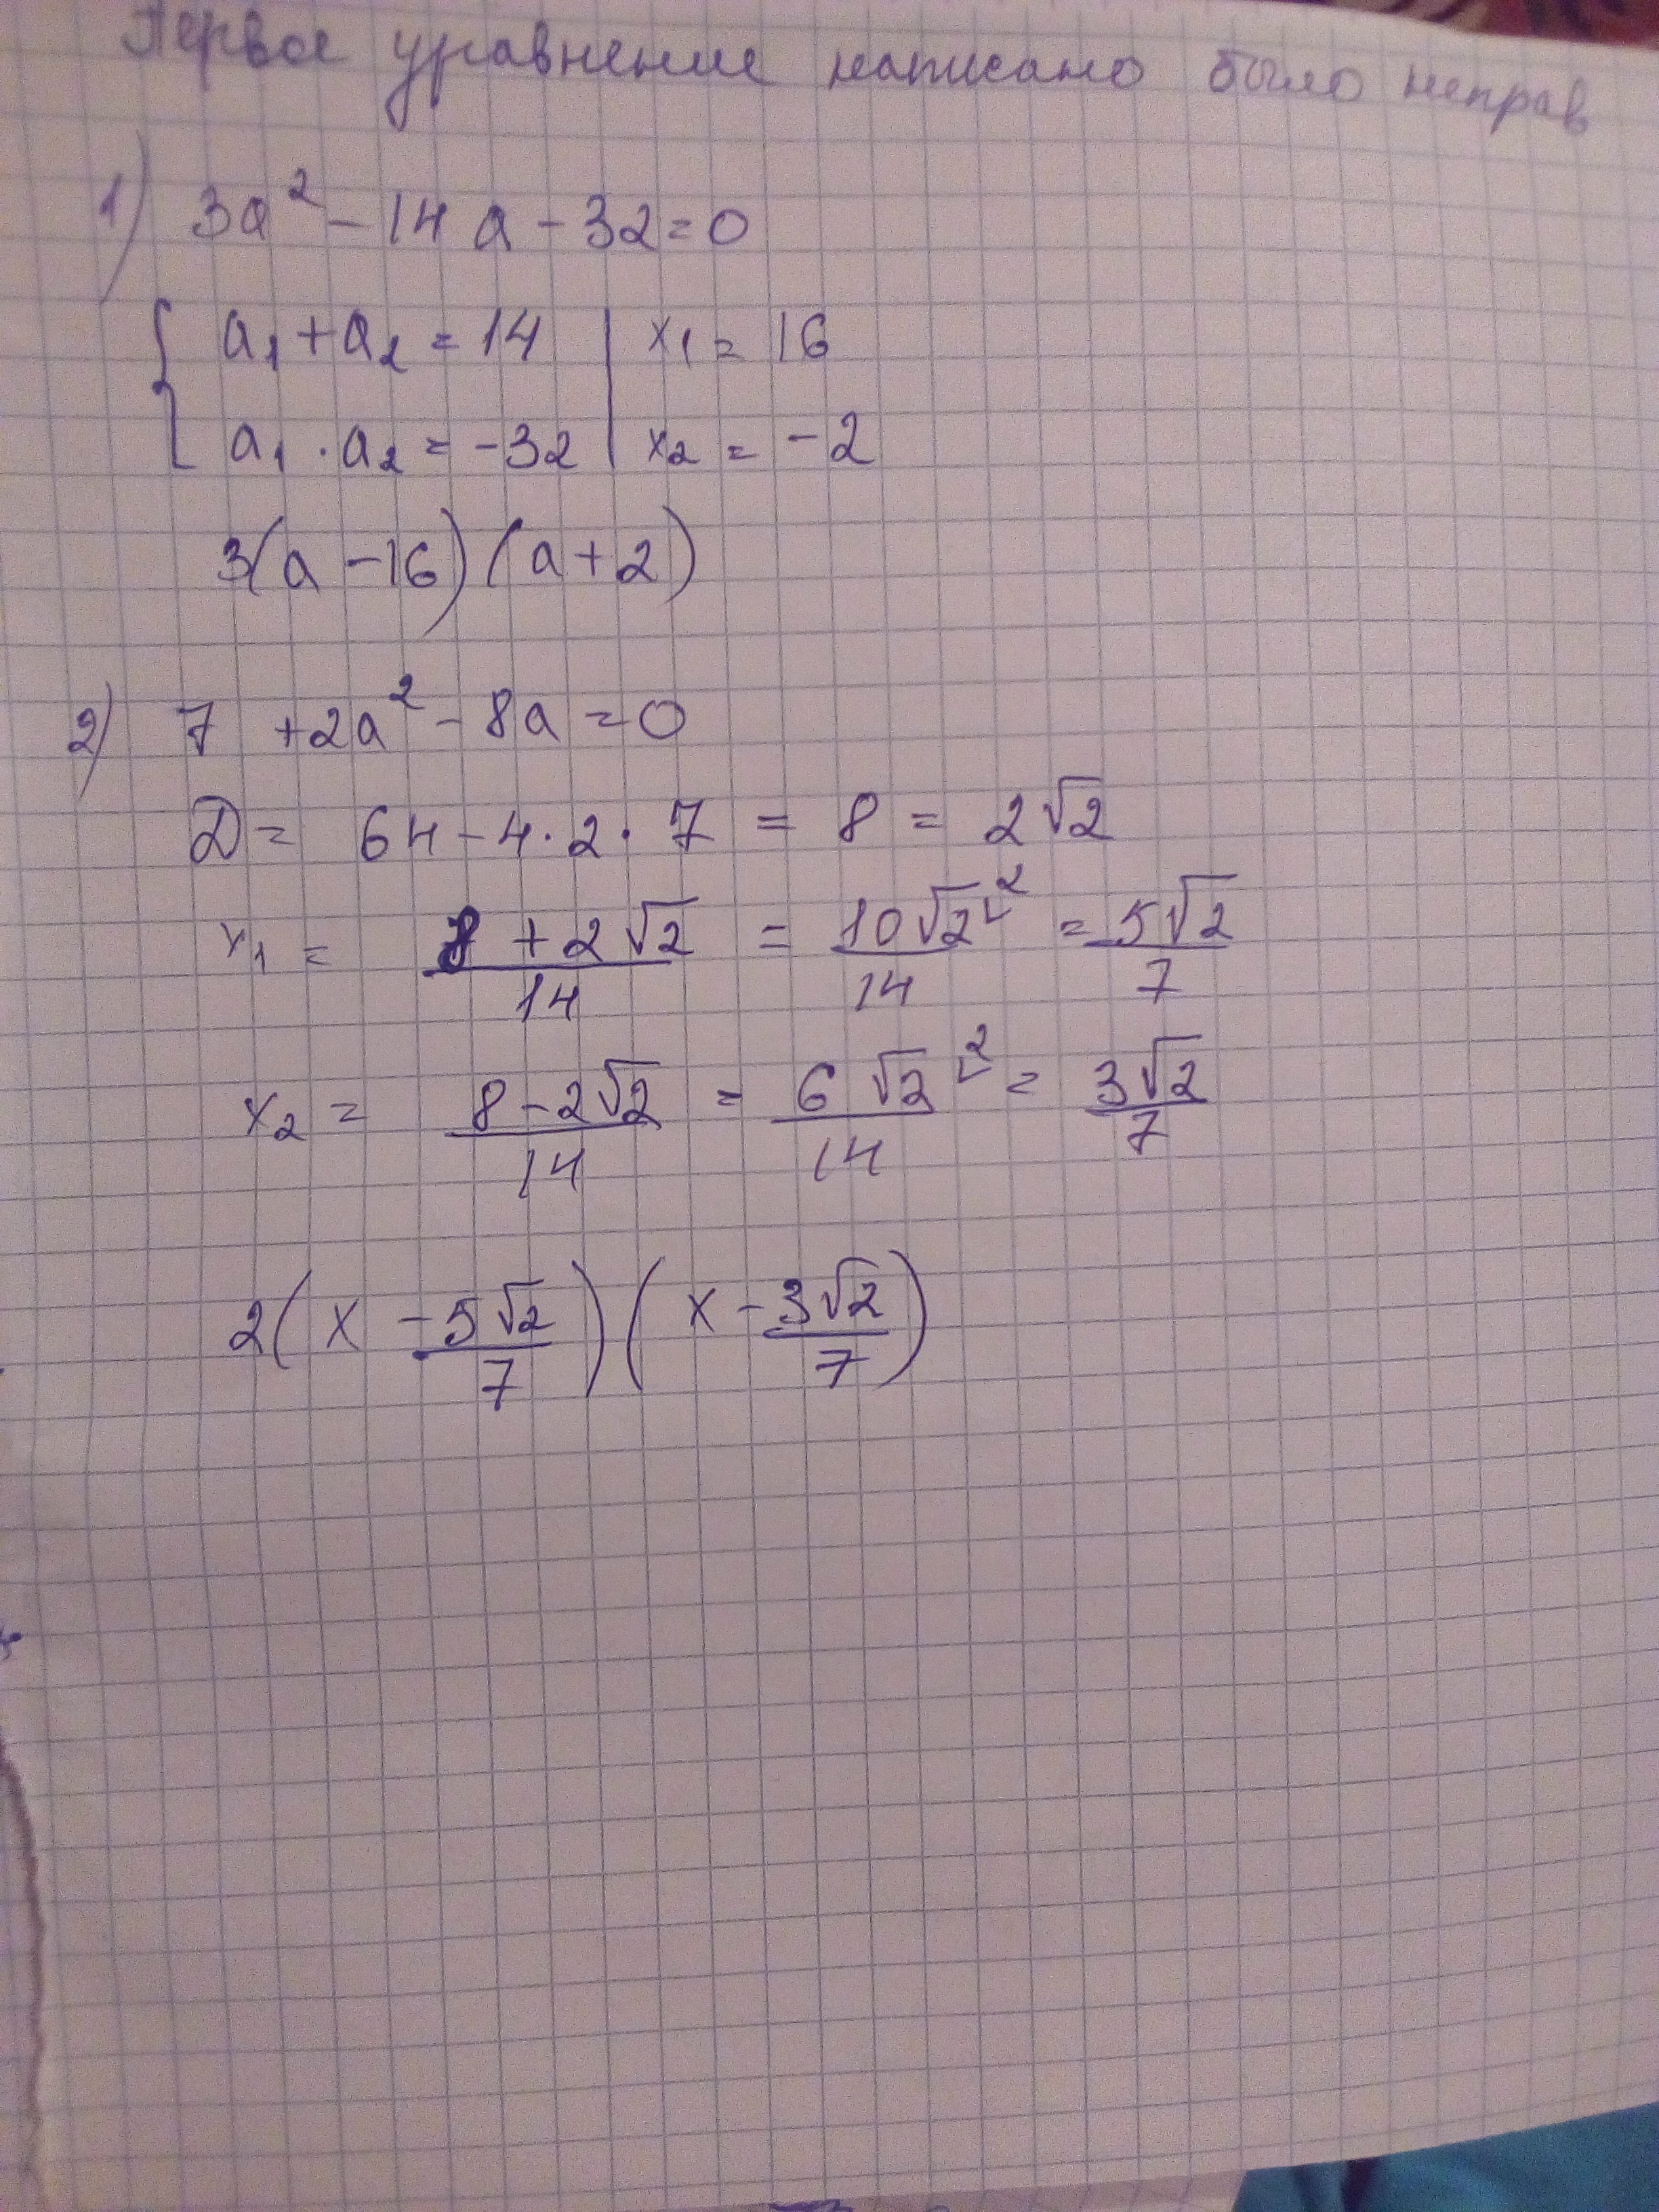 Первое уравнение написано было неправ
1) 3a² - 14a - 32 = 0
{ a₁ + a₂ = 14 | x₁ = 16
a₁ · a₂ = -32 | x₂ = -2
3(a - 16)(a + 2)
2) 7 + 2a² - 8a = 0
D = 64 - 4·2·7 = 8 = 2√2
x₁ = (8 + 2√2)/14 = 10√2/14 ∟2 = 5√2/7
x₂ = (8 - 2√2)/14 = 6√2/14 ∟2 = 3√2/7
2(x - 5√2/7)(x - 3√2/7)